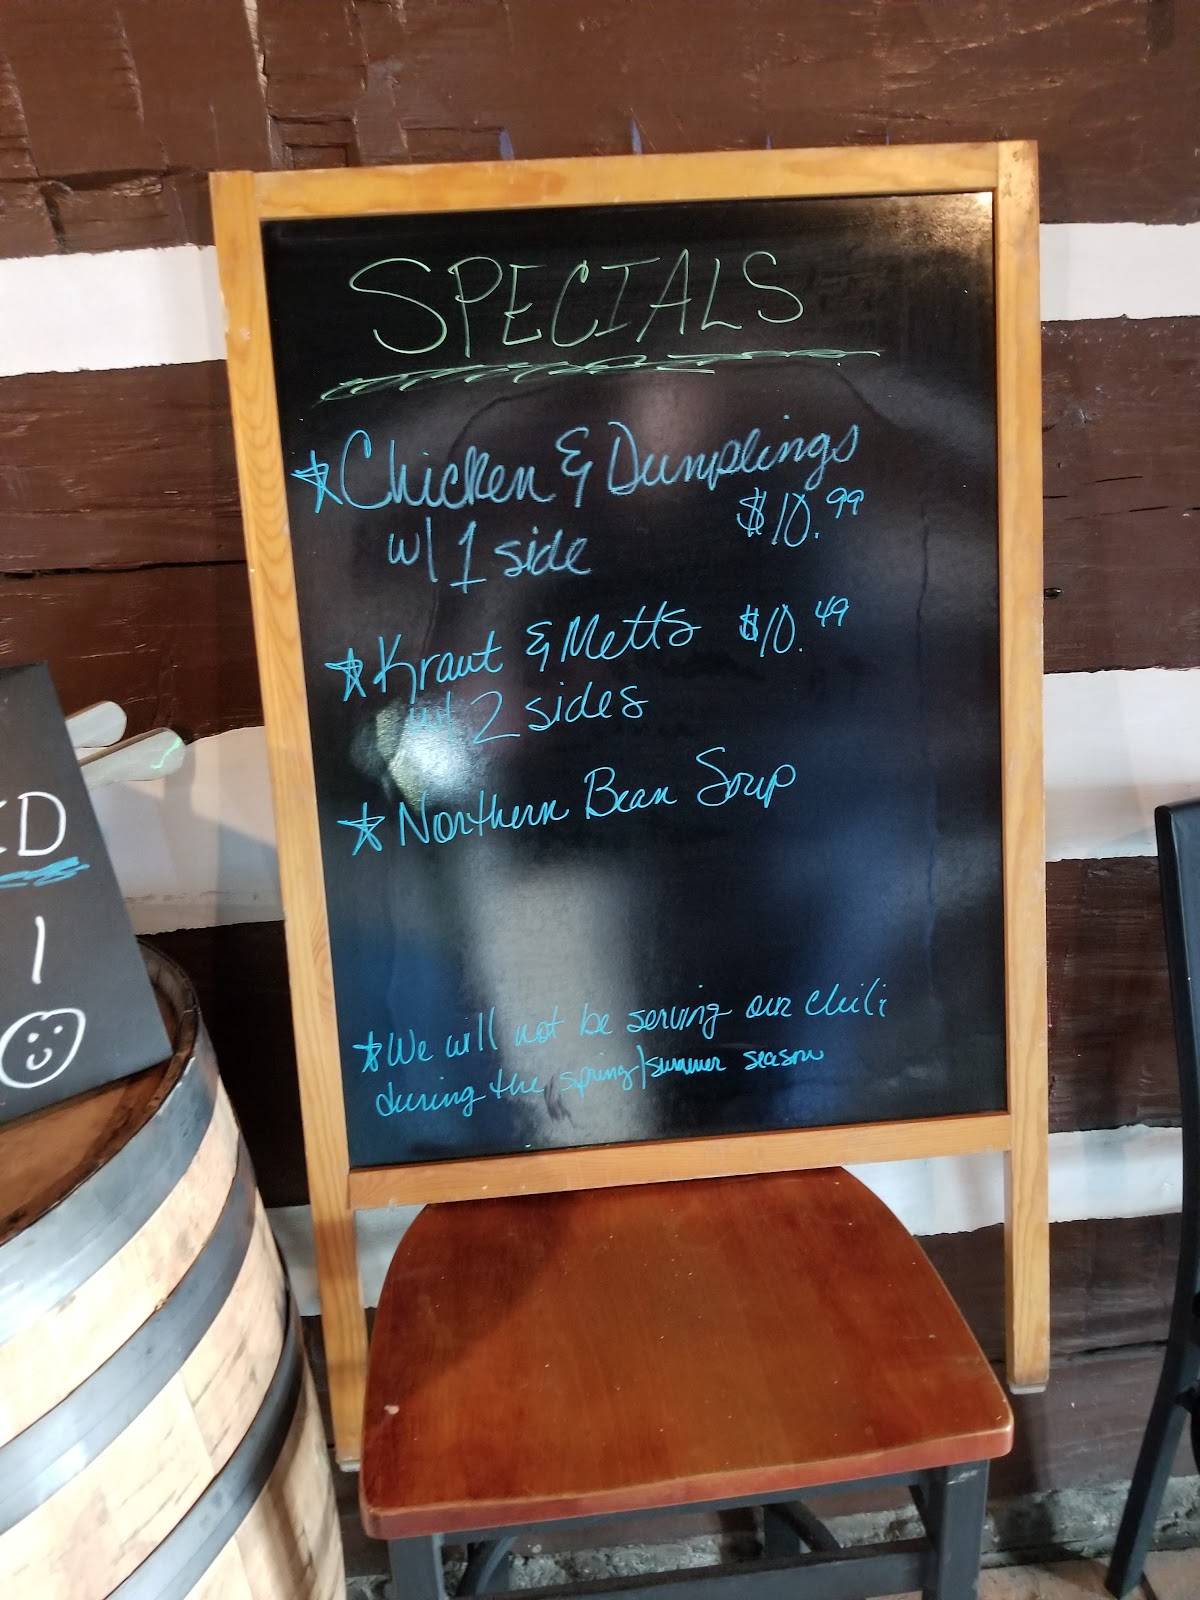 SPECIALS
★ Chicken & Dumplings
w/ 1 side $10.99
★ Kraut & Metts $10.49
w/ 2 sides
★ Northern Bean Soup
★ We will not be serving our chili
during the spring/summer season
D
I